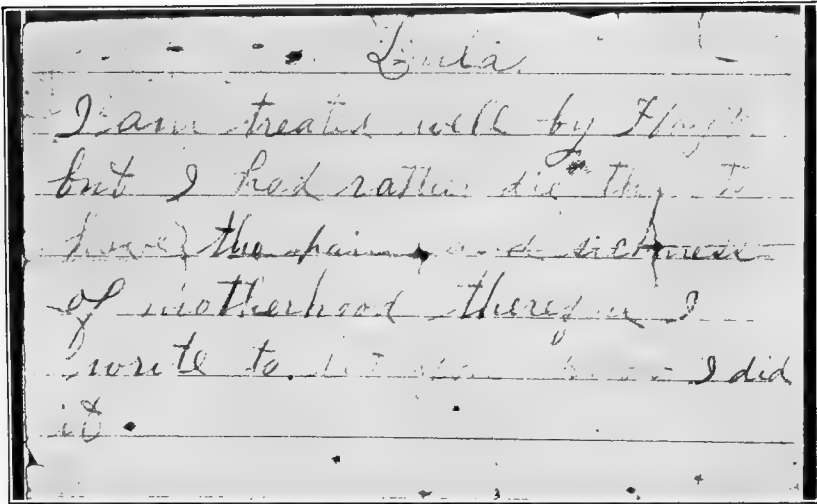 Lula
I am treated well by Floyd
but I had rather die than to
have the pain and sickness
of motherhood therefore I
write to let you know I did
it.